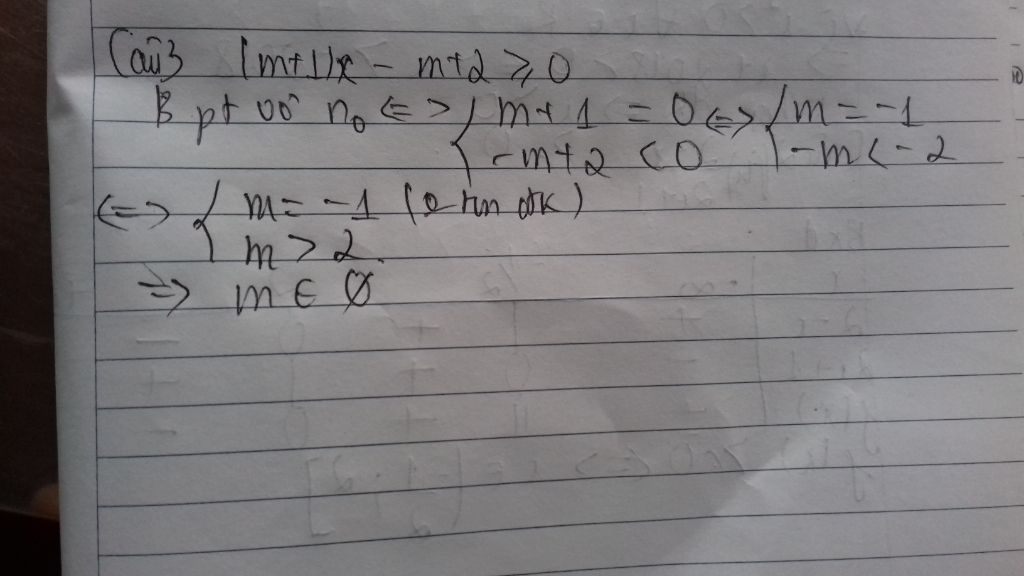 Câu 3 (m+1)x - m+2 ⩾ 0
B pt vô n₀ <=> { m+1 = 0 <=> { m = -1
-m+2 < 0 -m < -2
<=> { m = -1 ( tm đk)
m > 2
=> m ∈ Ø